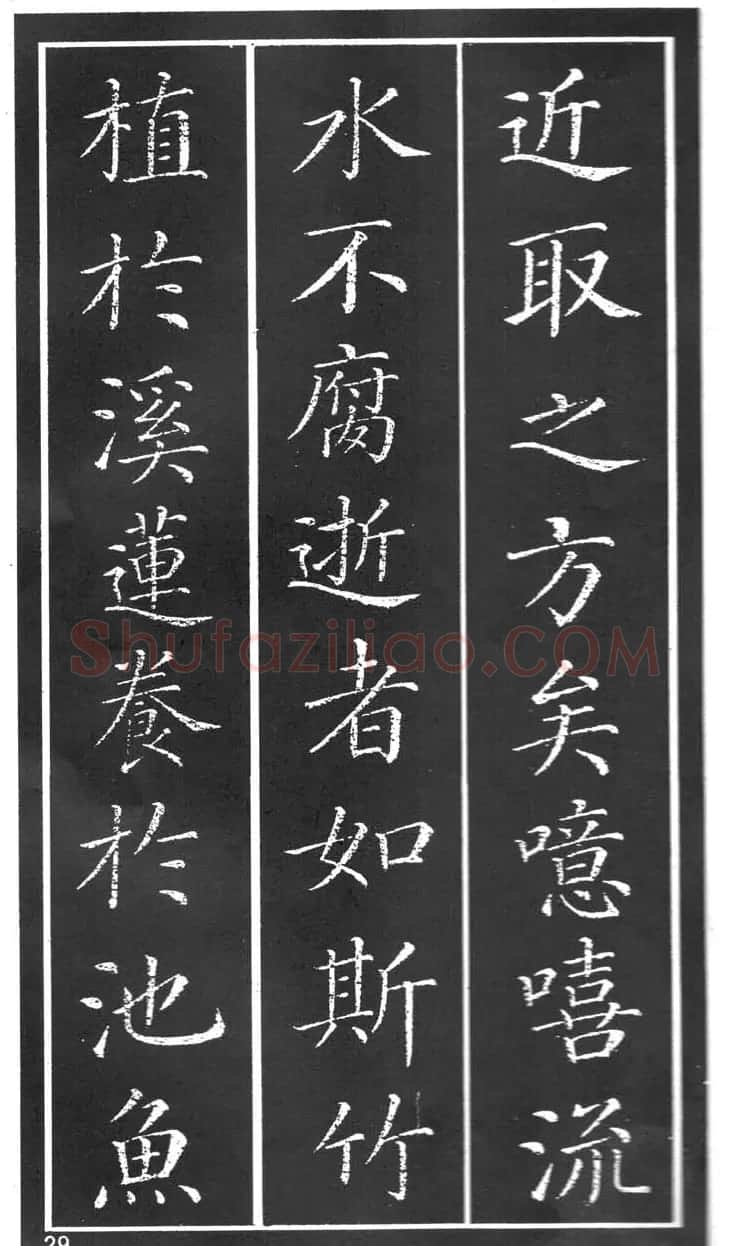 近取之方矣噫嘻流
水不腐逝者如斯竹
植於溪蓮養於池魚
Shufaziliao.COM
29